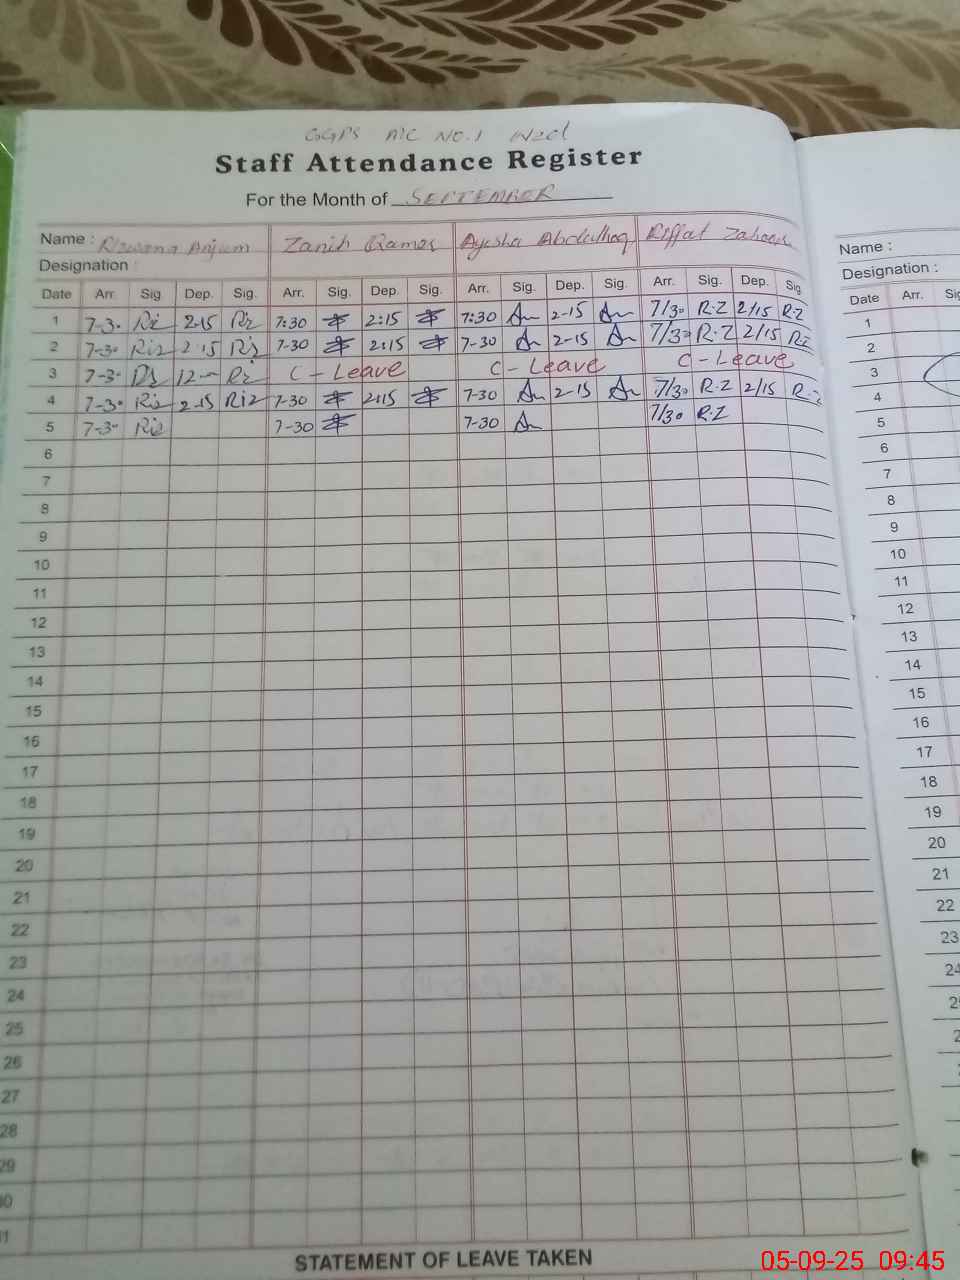 GGPS MC NO.1
Staff Attendance Register
For the Month of SEPTEMBER
Name : Rizwana Anjum Zanib Qamar Ayesha Abdulhaq Riffat Zahoor
Designation :
Date Arr. Sig. Dep. Sig. Arr. Sig. Dep. Sig. Arr. Sig. Dep. Sig. Arr. Sig. Dep. Sig.
1 7-30 Riz 2-15 Riz 7:30 2:15 7:30 2-15 7/30 R.Z 2/15 R.Z
2 7-30 Riz 2-15 Riz 7-30 2:15 7-30 2-15 7/30 R.Z 2/15 R.Z
3 7-30 Riz C-Leave C-Leave C-Leave
4 7-30 Riz 2-15 Riz 7-30 2:15 7-30 2-15 7/30 R.Z 2/15 R.Z
5 7-30 Riz 7-30 7-30 7/30 R.Z
6
7
8
9
10
11
12
13
14
15
16
17
18
19
20
21
22
23
24
25
26
27
28
29
STATEMENT OF LEAVE TAKEN
Name :
Designation :
Date Arr.
1
2
3
4
5
6
7
8
9
10
11
12
13
14
15
16
17
18
19
20
21
22
23
24
05-09-25 09:45